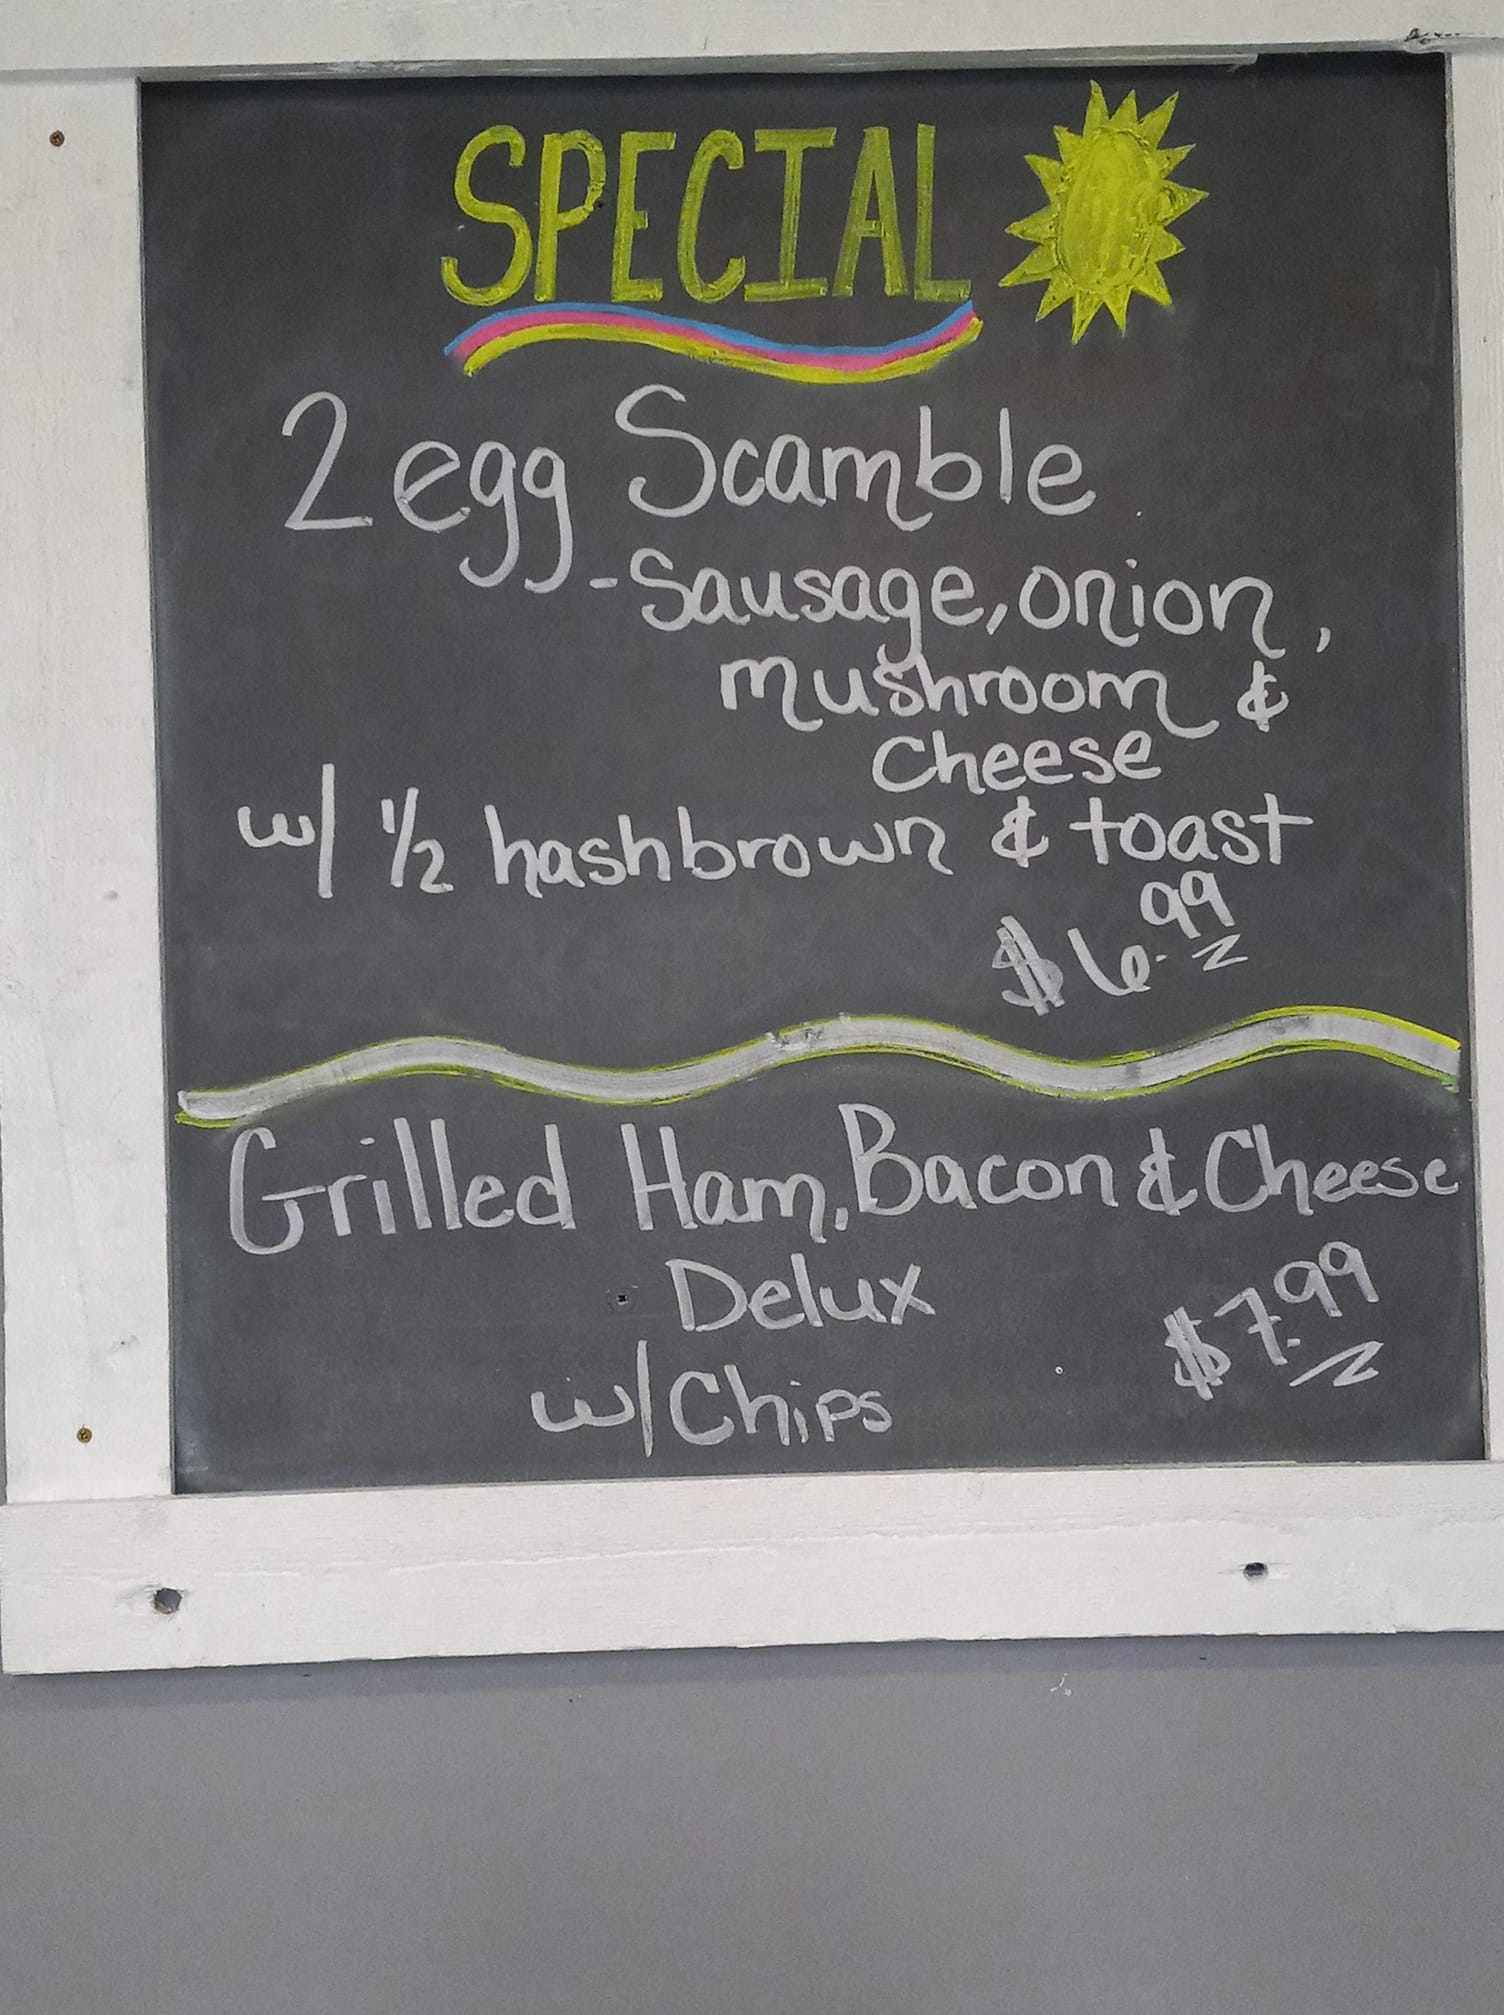 SPECIAL
2 egg Scamble
-Sausage, onion,
mushroom &
Cheese
w/ 1/2 hashbrown & toast
$6.99
Grilled Ham, Bacon & Cheese
Delux
$7.99
w/ Chips